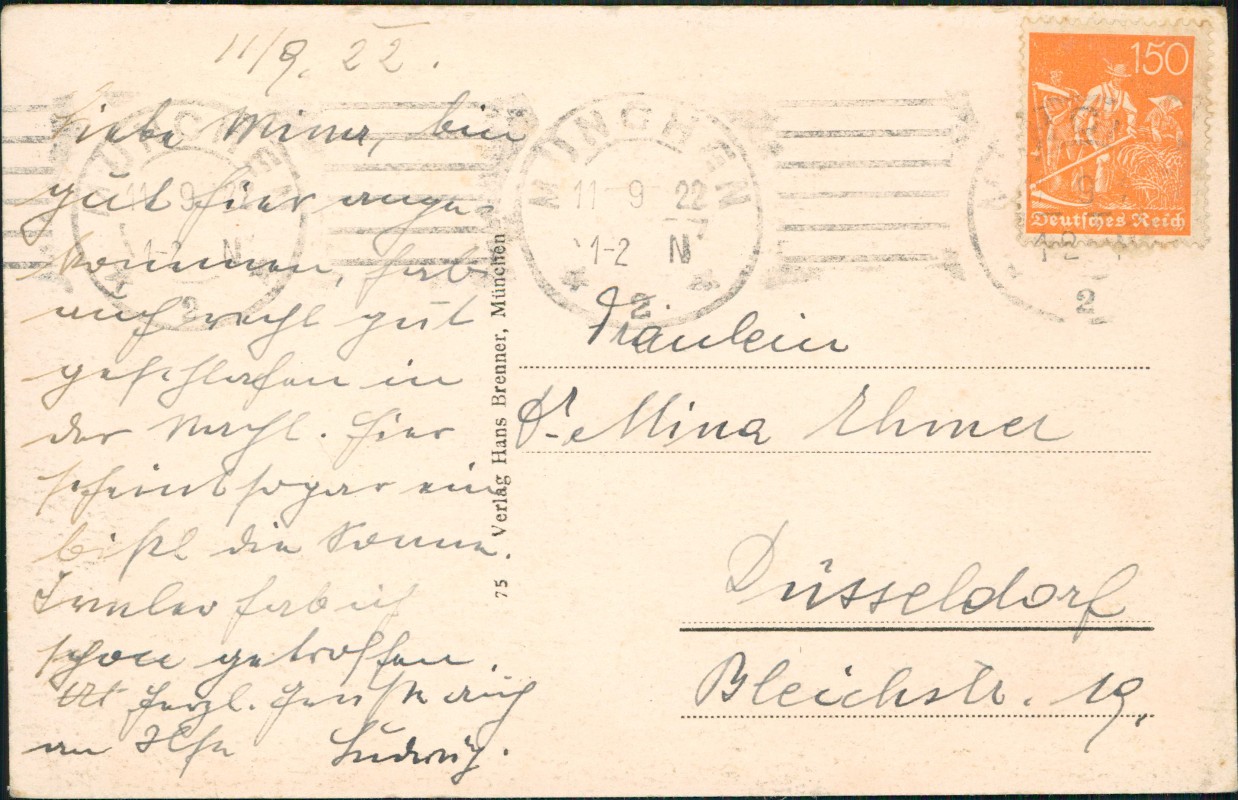 11/9. 22.
Liebe Mina, bin
gut hier ange-
kommen, hab
auch recht gut
geschlafen in
der Nacht. Hier
scheint sogar ein
bißl die Sonne.
hab ich
schon getroffen.
herzl. Gruß auch
an Ilse Ludwig.
75 Verlag Hans Brenner, München
MÜNCHEN
11 9 22
1-2 N
2
MÜNCHEN
11 9 22
1-2 N
2
150
Deutsches Reich
9
1-2
2
Fräulein
Mina Ehmer
Düsseldorf
Bleichstr. 19.